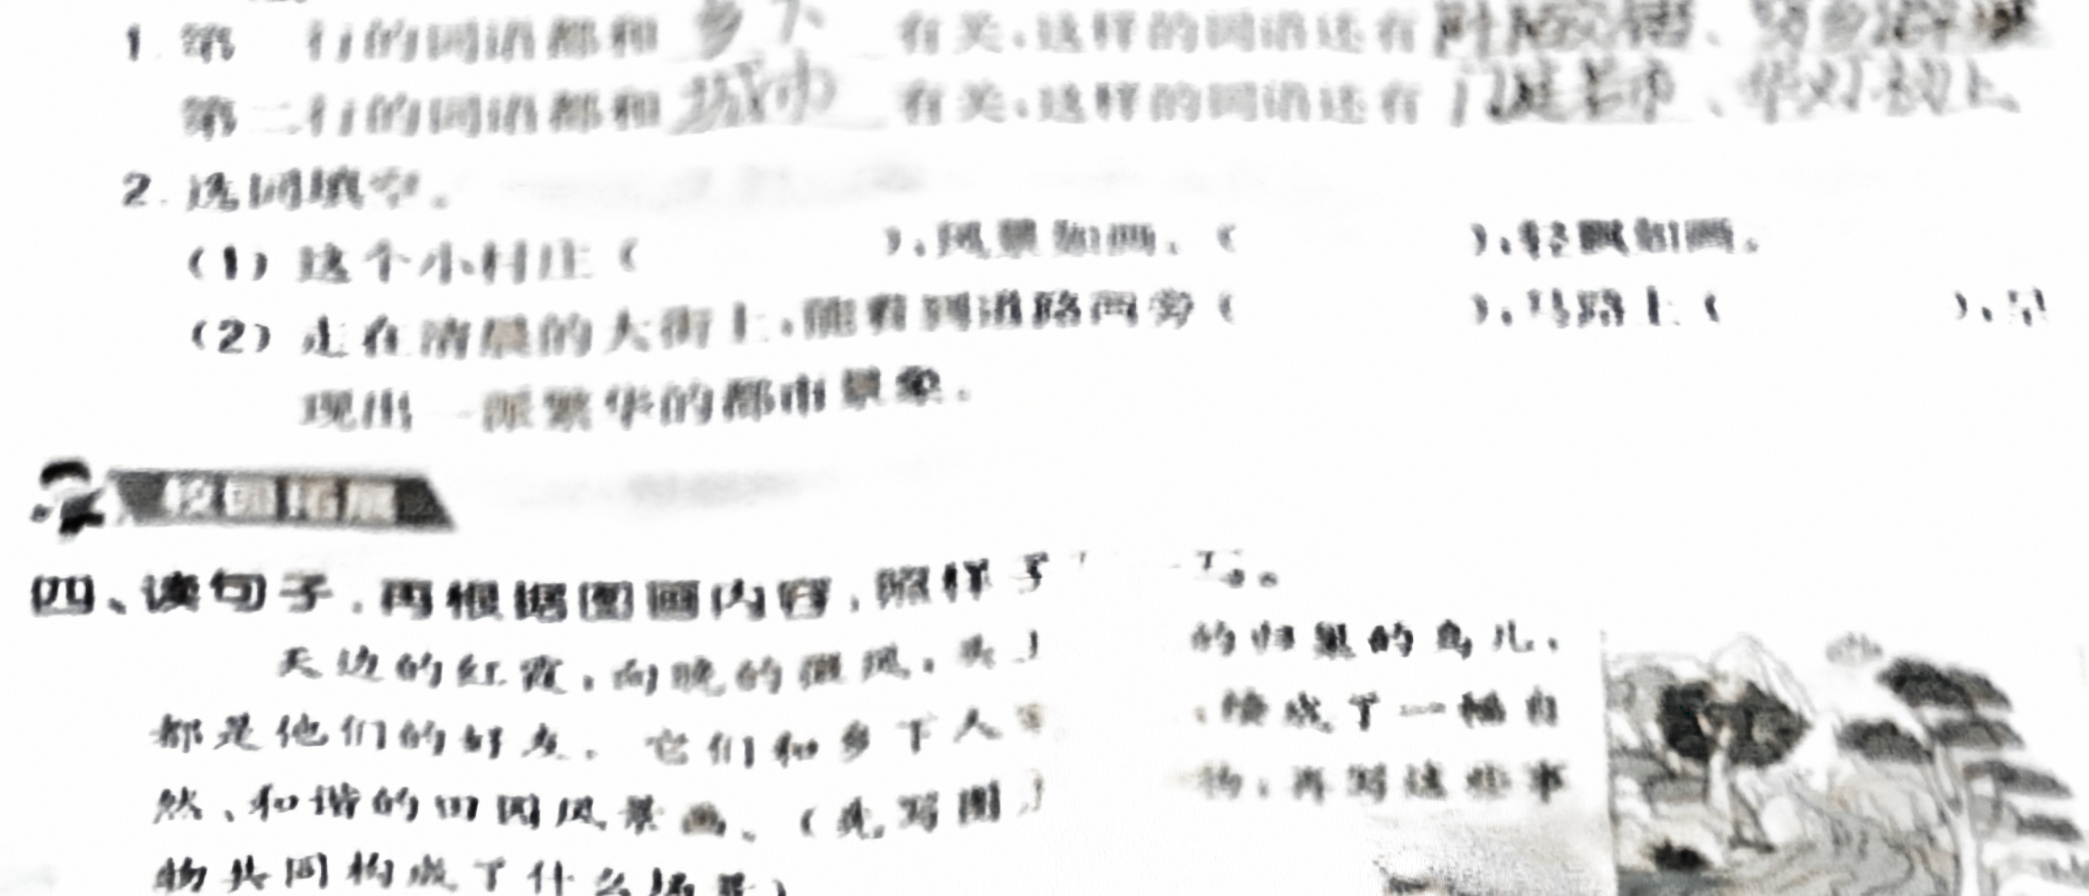 1. 第 行的词语都和 乡下 有关,这样的词语还有
第二行的词语都和 城市 有关,这样的词语还有 门庭若市、华灯初上
2. 选词填空。
(1) 这个小村庄( ),风景如画。( ),轻飘如画。
(2) 走在清晨的大街上,能看到道路两旁( ),马路上( ),呈
现出一派繁华的都市景象。
四、读句子,再根据图画内容,照样子
天边的红霞,向晚的微风,头上 的归巢的鸟儿,
都是他们的好友。它们和乡下人 ,构成了一幅自
然、和谐的田园风景画。(先写图 物,再写这些事
物共同构成了什么场景)